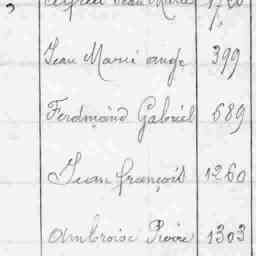 Jean Marie ange 399
Ferdmand Gabriel 689
Jean françois 1260
ambroise 1303